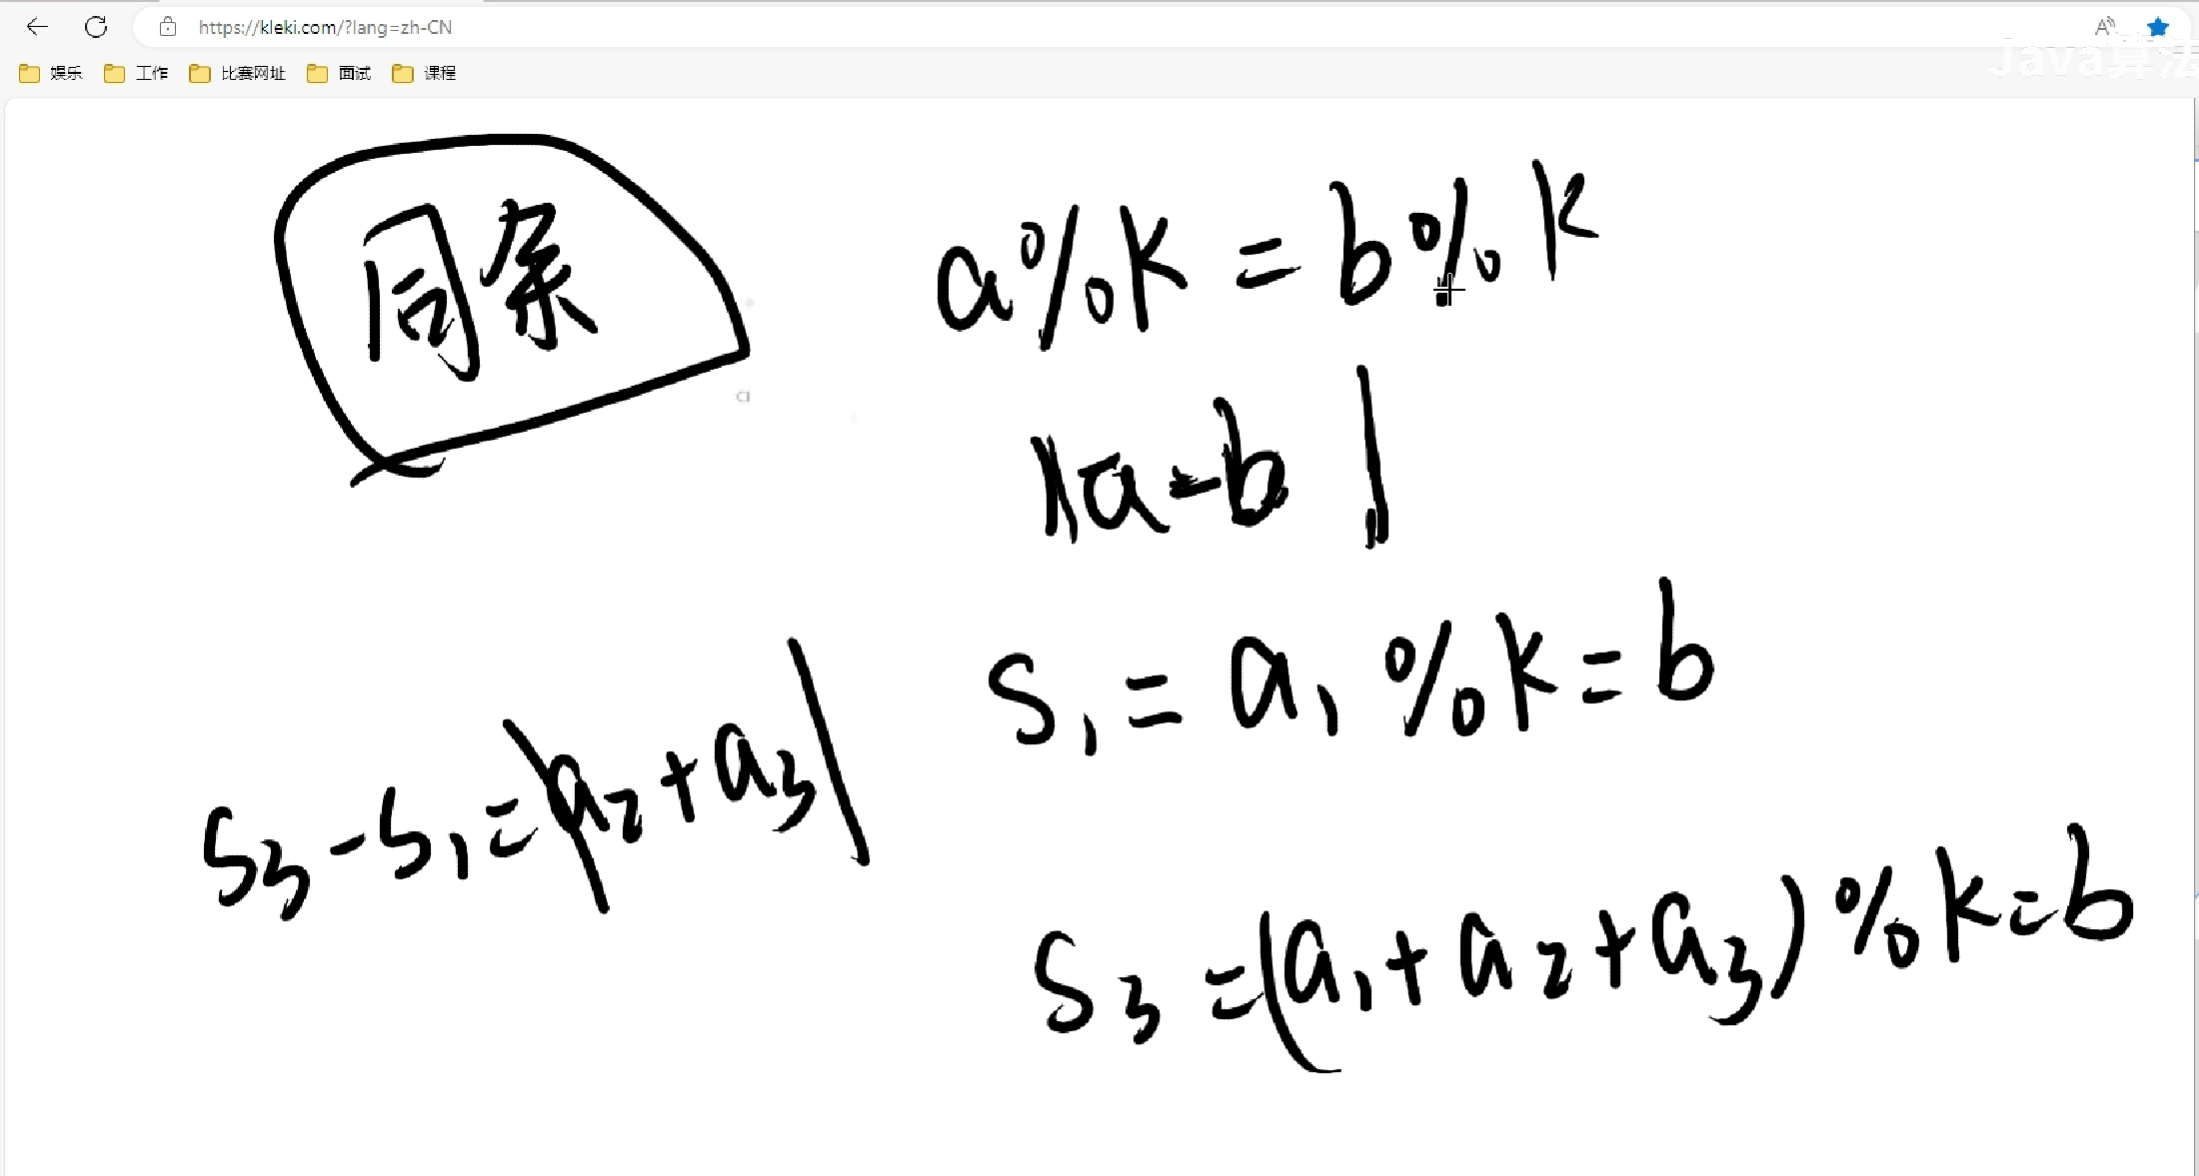 https://kleki.com/?lang=zh-CN
Java算法
娱乐 工作 比赛网址 面试 课程
同余
a%k = b%k
|a-b|
S₁ = a₁ %k = b
S₃-S₁=|a₂+a₃|
S₃ =(a₁+a₂+a₃)%k=b